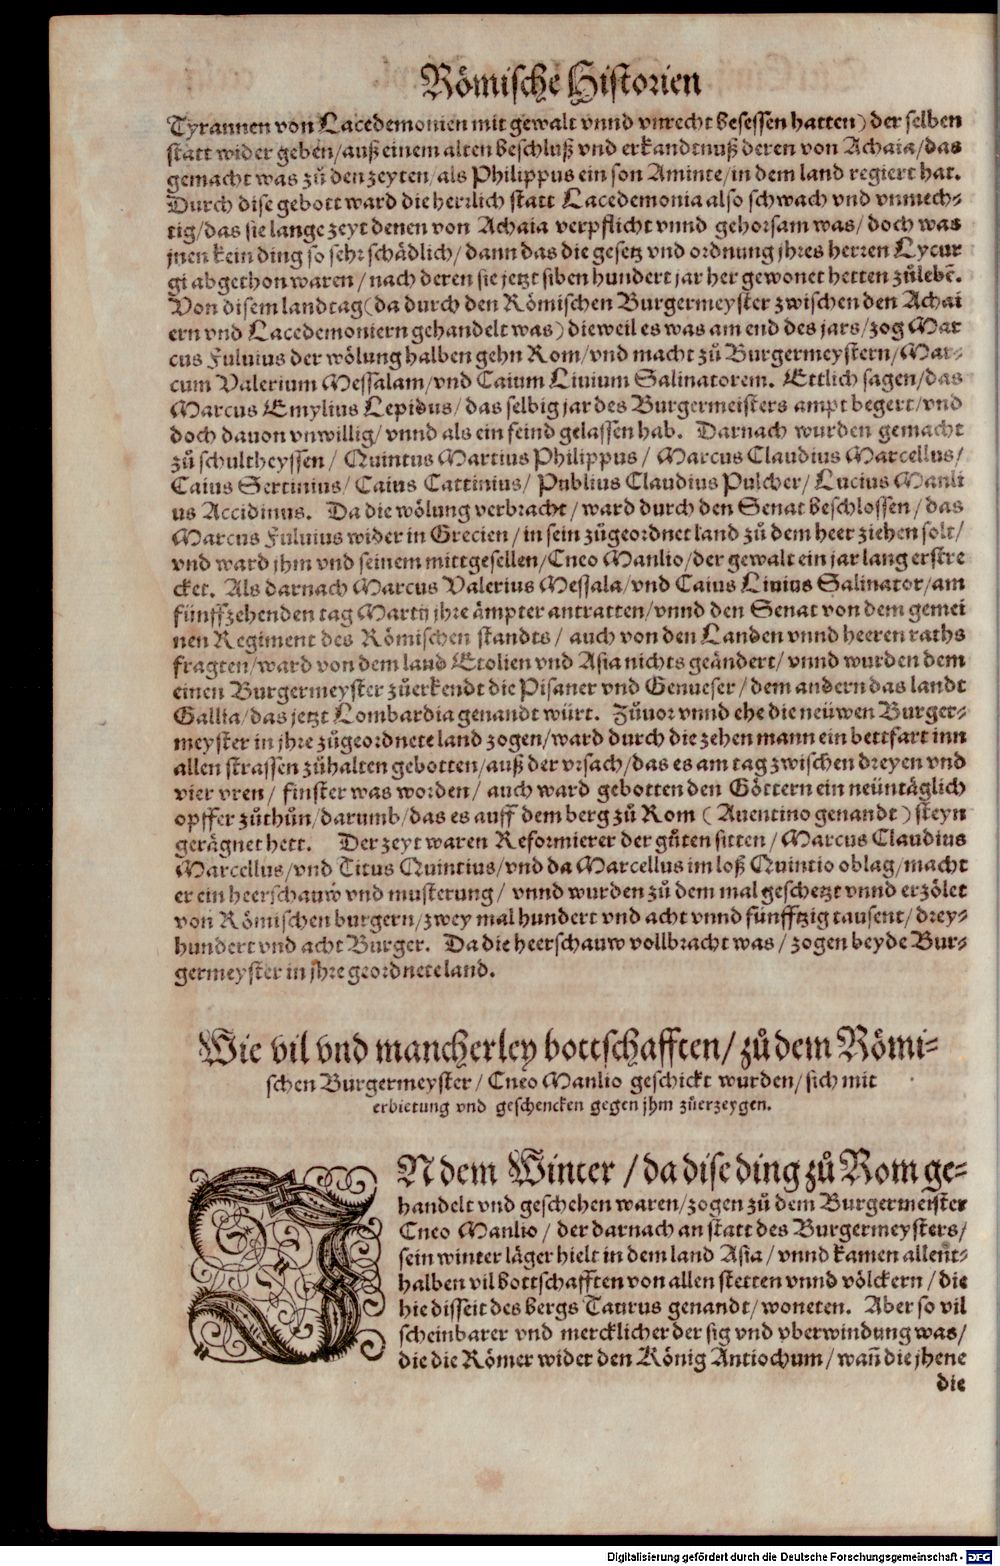 Römische Historien
Tyrannen von Lacedemonien mit gewalt vnnd vnrecht besessen hatten) der selben
statt wider geben/auß einem alten beschluß vnd erkandtnuß deren von Achaia/das
gemacht was zů den zeyten/als Philippus ein son Aminte/in dem land regiert hat.
Durch dise gebott ward die herrlich statt Lacedemonia also schwach vnd vnmech-
tig/das sie lange zeyt denen von Achaia verpflicht vnnd gehorsam was/doch was
jnen kein ding so sehr schädlich/dann das die gesetz vnd ordnung jhres herren Lycur
gi abgethon waren/nach deren sie jetzt siben hundert jar her gewonet hetten zůlebē.
Von disem landtag (da durch den Römischen Burgermeyster zwischen den Achai
ern vnd Lacedemoniern gehandelt was) dieweil es was am end des jars/zog Mar
cus Fuluius der wölung halben gehn Rom/vnd macht zů Burgermeystern/Mar-
cum Valerium Messalam/vnd Caium Liuium Salinatorem. Ettlich sagen/das
Marcus Emylius Lepidus/das selbig jar des Burgermeisters ampt begert/vnd
doch dauon vnwillig/vnnd als ein feind gelassen hab. Darnach wurden gemacht
zů schultheyssen/Quintus Martius Philippus/Marcus Claudius Marcellus/
Caius Sertinius/Caius Cattinius/Publius Claudius Pulcher/Lucius Manli
us Accidinus. Da die wölung verbracht/ward durch den Senat beschlossen/das
Marcus Fuluius wider in Grecien/in sein zůgeordnet land zů dem heer ziehen solt/
vnd ward jhm vnd seinem mittgesellen/Cneo Manlio/der gewalt ein jar lang erstre
cket. Als darnach Marcus Valerius Messala/vnd Caius Liuius Salinator/am
fünffzehenden tag Martij jhre ämpter antratten/vnnd den Senat von dem gemei
nen Regiment des Römischen standts/auch von den Landen vnnd heeren raths
fragten/ward von dem land Etolien vnd Asia nichts geändert/vnnd wurden dem
einen Burgermeyster zůerkendt die Pisaner vnd Genueser/dem andern das landt
Gallia/das jetzt Lombardia genandt würt. Zůuor vnnd ehe die neüwen Burger-
meyster in jhre zůgeordnete land zogen/ward durch die zehen mann ein bettfart inn
allen strassen zůhalten gebotten/auß der vrsach/das es am tag zwischen dreyen vnd
vier vren/finster was worden/auch ward gebotten den Göttern ein neüntäglich
opffer zůthůn/darumb/das es auff dem berg zů Rom (Auentino genandt) steyn
gerägnet hett. Der zeyt waren Reformierer der gůten sitten/Marcus Claudius
Marcellus/vnd Titus Quintius/vnd da Marcellus im loß Quintio oblag/macht
er ein heerschauw vnd musterung/vnnd wurden zů dem mal geschetzt vnnd erzölet
von Römischen burgern/zwey mal hundert vnd acht vnnd fünfftzig tausent/drey-
hundert vnd acht Burger. Da die heerschauw vollbracht was/zogen beyde Bur-
germeyster in jhre geordnete land.
Wie vil vnd mancherley bottschafften/zů dem Römi-
schen Burgermeyster/Cneo Manlio geschickt wurden/sich mit
erbietung vnd geschencken gegen jhm zůerzeygen.
IN dem Winter/da dise ding zů Rom ge-
handelt vnd geschehen waren/zogen zů dem Burgermeister
Cneo Manlio/der darnach an statt des Burgermeysters/
sein winter läger hielt in dem land Asia/vnnd kamen allent-
halben vil bottschafften von allen stetten vnnd völckern/die
hie disseit des bergs Taurus genandt/woneten. Aber so vil
scheinbarer vnd mercklicher der sig vnd vberwindung was/
die die Römer wider den König Antiochum/wañ die jhene
die
Digitalisierung gefördert durch die Deutsche Forschungsgemeinschaft - DFG